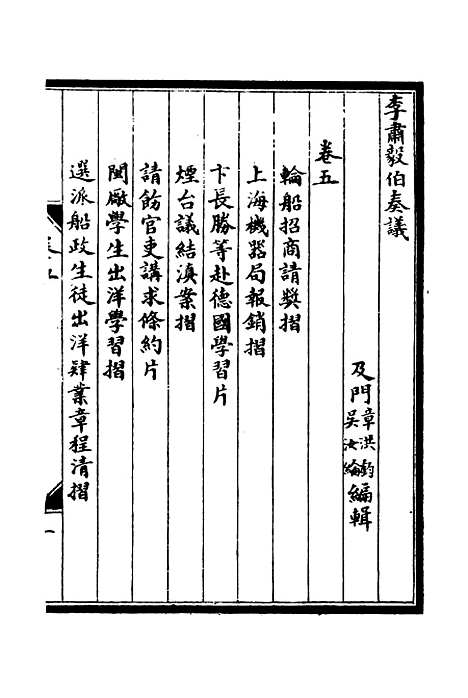 李肅毅伯奏議
及門章洪鈞吳汝綸編輯
卷五
輪船招商請獎摺
上海機器局報銷摺
卞長勝等赴德國學習片
煙台議結滇案摺
請飭官吏講求條約片
閩廠學生出洋學習摺
選派船政生徒出洋肄業章程清摺
卷五
一